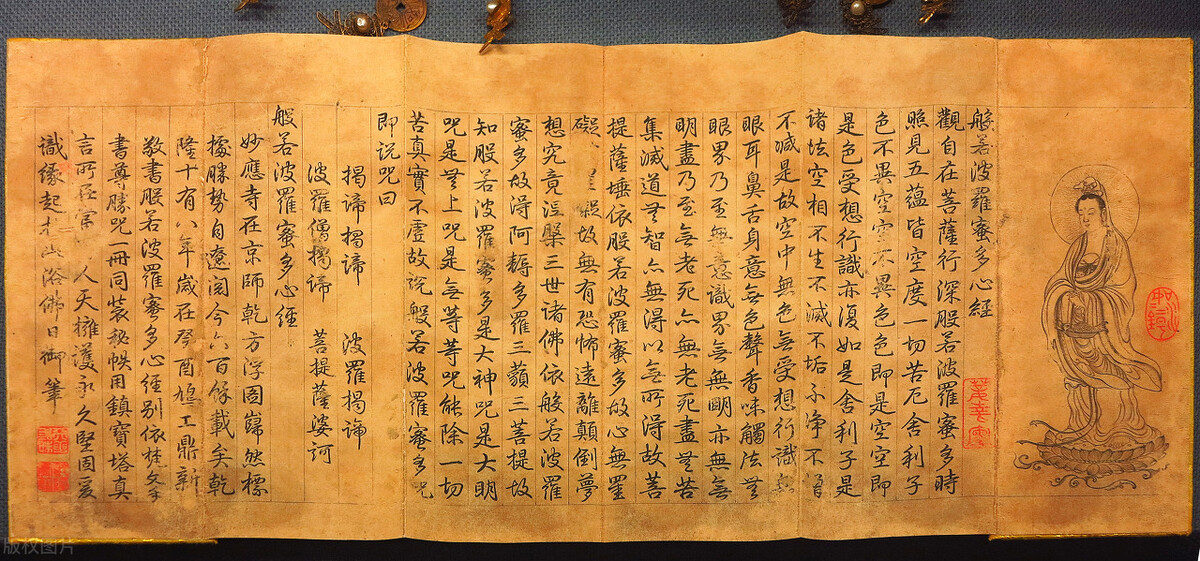 般若波羅蜜多心經
觀自在菩薩行深般若波羅蜜多時
照見五蘊皆空度一切苦厄舍利子
色不異空空不異色色即是空空即
是色受想行識亦復如是舍利子是
諸法空相不生不滅不垢不淨不增
不減是故空中無色無受想行識無
眼耳鼻舌身意無色聲香味觸法無
眼界乃至無意識界無無明亦無無
明盡乃至無老死亦無老死盡無苦
集滅道無智亦無得以無所得故菩
提薩埵依般若波羅蜜多故心無罣
礙罣礙故無有恐怖遠離顛倒夢
想究竟涅槃三世諸佛依般若波羅
蜜多故得阿耨多羅三藐三菩提故
知般若波羅蜜多是大神咒是大明
咒是無上咒是無等等咒能除一切
苦真實不虛故說般若波羅蜜多咒
即說咒曰
揭諦揭諦 波羅揭諦
波羅僧揭諦 菩提薩婆訶
般若波羅蜜多心經
妙應寺在京師乾方浮圖巋然標
據勝勢自遼閱今六百餘載矣乾
隆十有八年歲在癸酉鳩工鼎新
敬書般若波羅蜜多心經別依梵文
書尊勝咒一冊同裝秘帙用鎮寶塔真
言所在 人天擁護永久堅固爰
識緣起於此浴佛日御筆
版权图片